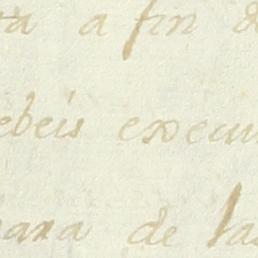 a fin
ebeis execu
para de las